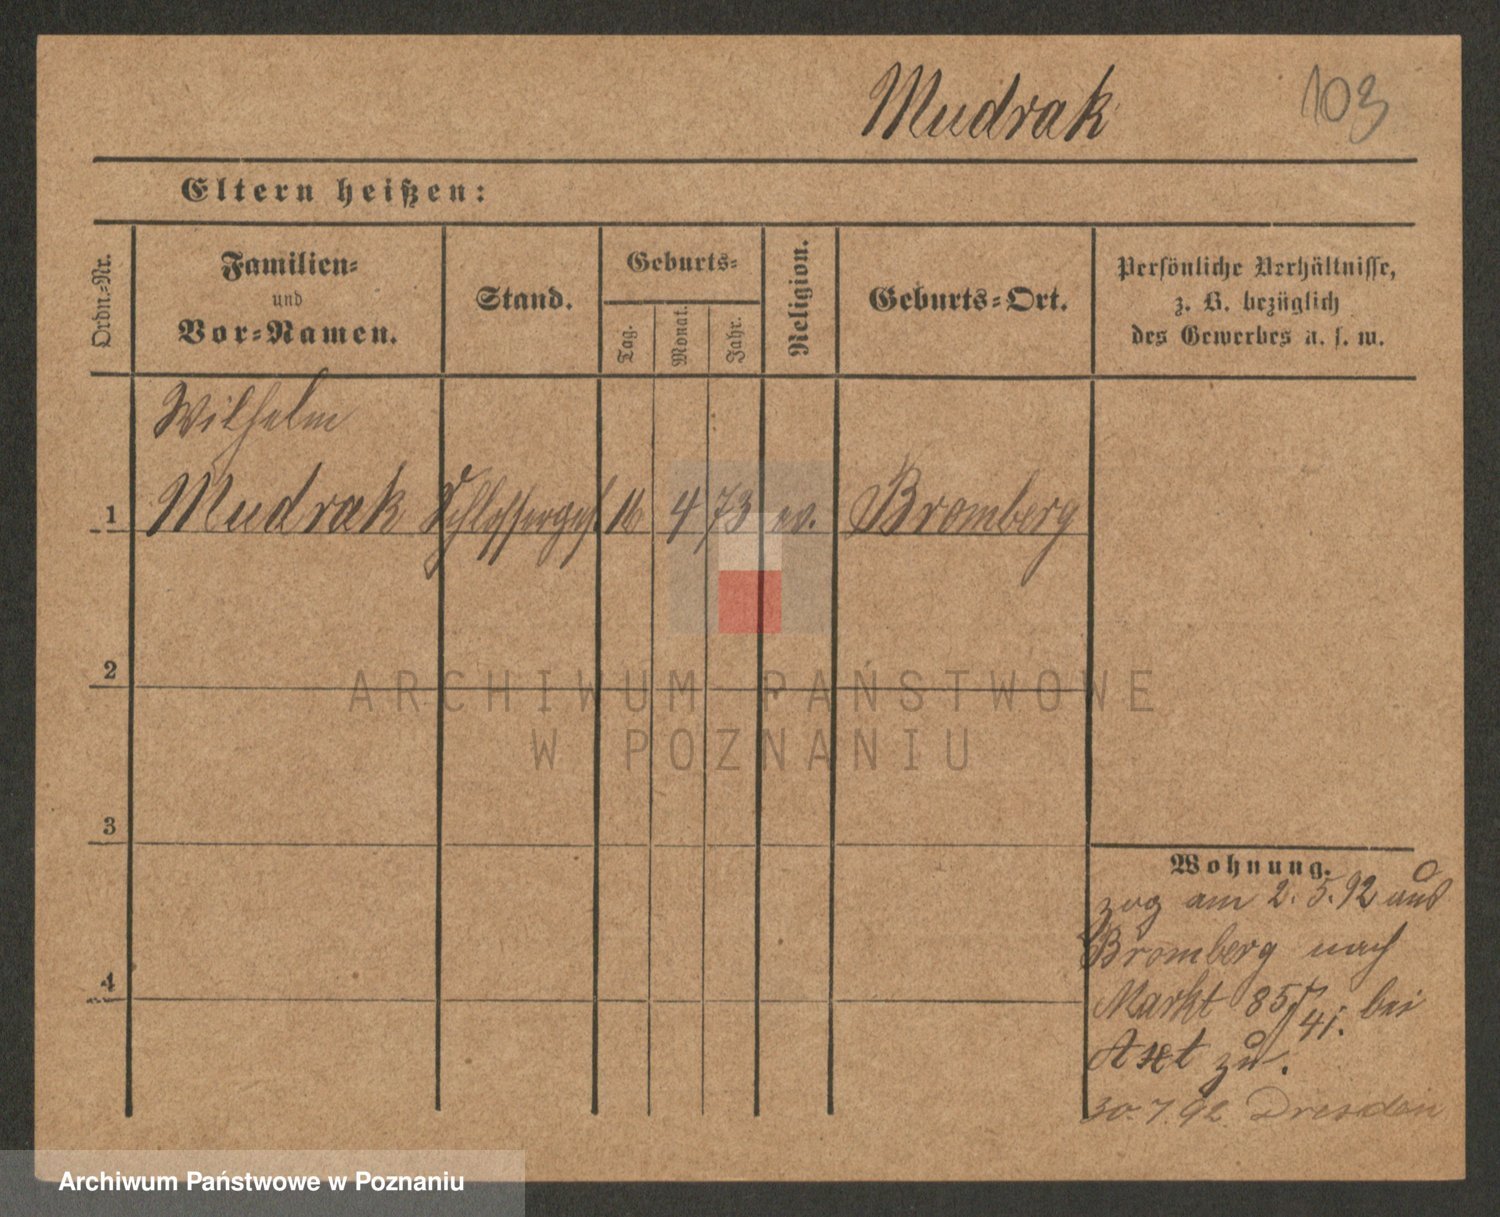 Mudrak 103
Eltern heißen:
Ordn.-Nr.
Familien-
und
Vor-Namen.
Stand.
Geburts-
Tag.
Monat.
Jahr.
Religion.
Geburts-Ort.
Persönliche Verhältnisse,
z. B. bezüglich
des Gewerbes u. s. w.
Wilhelm
1 Mudrak Schlossergess. 16 4 73 ev. Bromberg
2
3
4
ARCHIWUM PAŃSTWOWE
W POZNANIU
Wohnung.
zog am 2.5.92 aus
Bromberg nach
Markt 85/41. bei
Axt zu.
30.7.92 Dresden
Archiwum Państwowe w Poznaniu